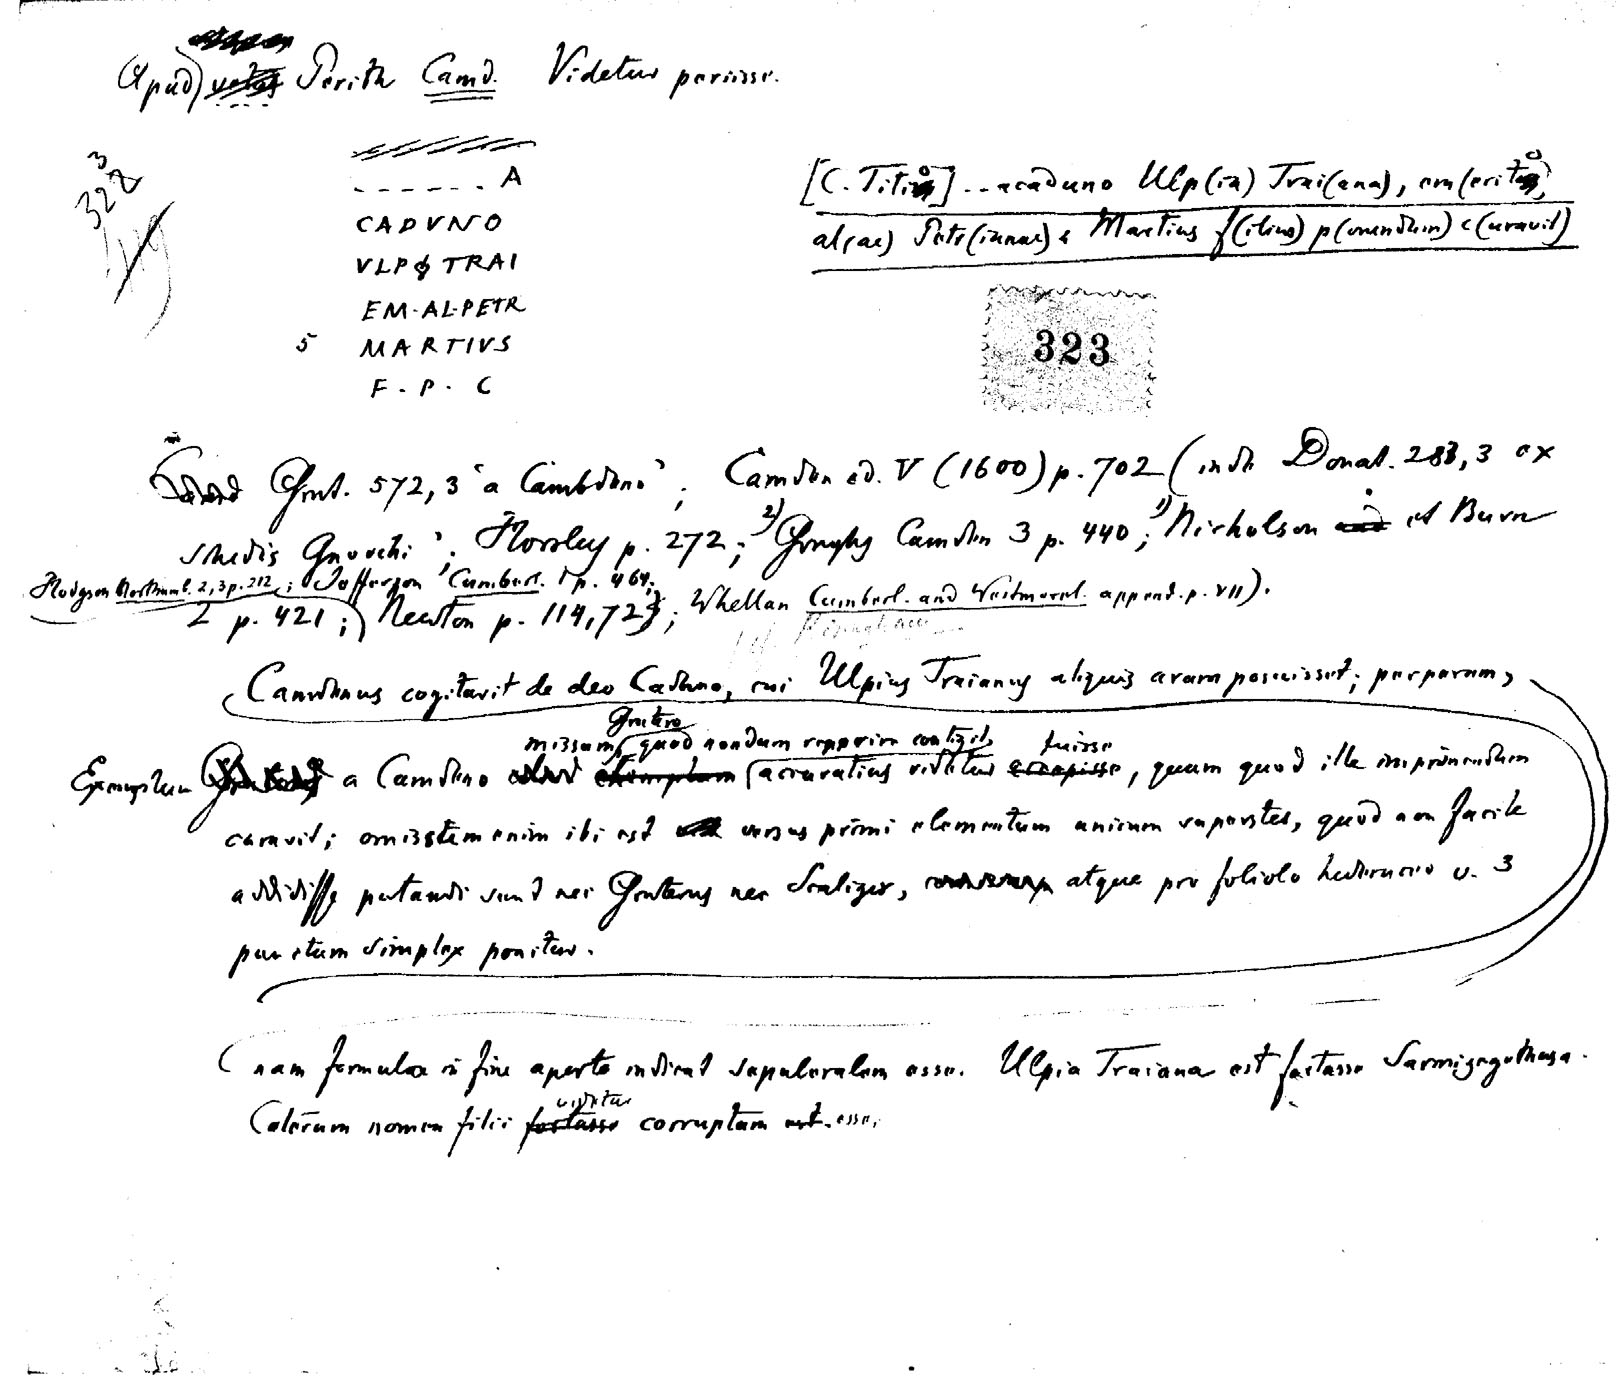 Apud Perith Camd. Videtur periisse.
3
322
A
CADVNO
VLP TRAI
EM·AL·PETR
5 MARTIVS
F · P · C
[C. Titio] ...acaduno Ulp(ia) Trai(ana), em(erito)
al(ae) Petr(ianae) Martius f(ilius) p(onendum) c(uravit)
323
Grut. 572,3 'a Cambdeno'; Camden ed. V (1600) p. 702 (inde Donat. 283,3 ex
schedis Gnocchi'; Horsley p. 272; 2) Goughs Camden 3 p. 440; 1) Nicholson et Burn
Hodgson Northumb. 2,3 p. 212; Jefferson Cumberl. 1 p. 464;
2 p. 421; Newton p. 114,72; Whellan Cumberl. and Westmorel. append. p. VII).
Camdenus cogitavit de deo Caduno, cui Ulpius Traianus aliquis aram posuisset; perperam,
Grutero
missum, quod nondum repperire contigit, fuisse
Exemplum a Camdeno exemplum accuratius videtur, quam quod ille imprimendum
curavit; omissum enim ibi est versus primi elementum unicum superstes, quod non facile
addidisse putandi sunt nec Gruterus nec Scaliger, atque pro foliolo hederaceo v. 3
punctum simplex ponitur.
nam formulae in fine aperte indicat sepulcralem esse. Ulpia Traiana est fortasse Sarmizegethusa.
videtur
Ceterum nomen filii fortasse corruptum est. esse.